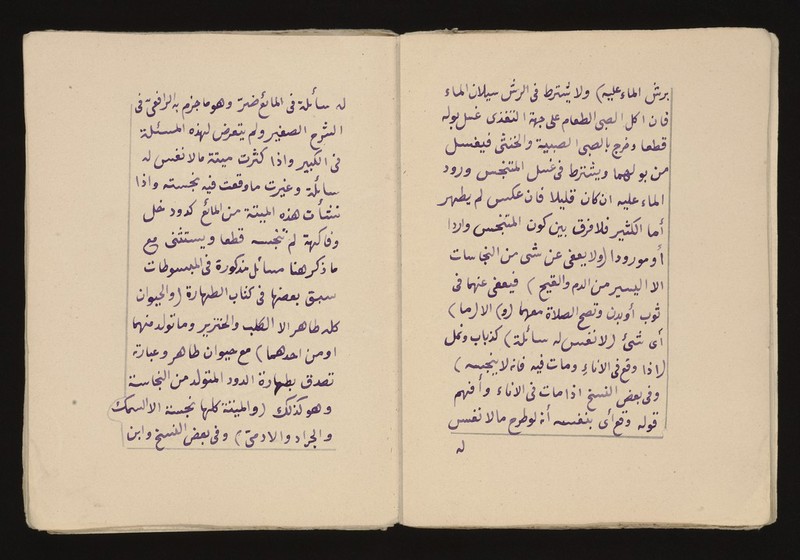 برش الماء عليه) ولا يشترط فى الرش سيلان الماء
فان اكل الصبى الطعام على جهة التغذى غسل بوله
قطعا وخرج بالصبى الصبية والخنثى فيغسل
من بولهما ويشترط فى غسل المتنجس ورود
الماء عليه ان كان قليلا فان عكس لم يطهر
أما الكثير فلا فرق بين كون المتنجس واردا
أو مورودا (ولا يعفى عن شئ من النجاسات
الا اليسير من الدم والقيح) فيعفى عنهما فى
ثوب أو بدن وتصح الصلاة معهما (و) الا (ما)
أى شئ (لا نفس له سائلة) كذباب ونمل
(اذا وقع فى الاناء ومات فيه فانه لا ينجسه)
وفى بعض النسخ اذا مات فى الاناء وأفهم
قوله وقع أى بنفسه أنه لو طرح ما لا نفس
له
له سائلة فى المائع ضر وهو ما جزم به الرافعى فى
الشرح الصغير ولم يتعرض لهذه المسئلة
فى الكبير واذا كثرت ميتة ما لا نفس له
سائلة وغيرت ما وقعت فيه نجسته واذا
نشأت هذه الميتة من المائع كدود خل
وفاكهة لم تنجسه قطعا ويستثنى مع
ما ذكر هنا مسائل مذكورة فى المبسوطات
سبق بعضها فى كتاب الطهارة (والحيوان
كله طاهر الا الكلب والخنزير وما تولد منهما
او من احدهما) مع حيوان طاهر وعبارته
تصدق بطهارة الدود المتولد من النجاسة
وهو كذلك (والميتة كلها نجسة الا السمك
والجراد والادمى) وفى بعض النسخ وابن